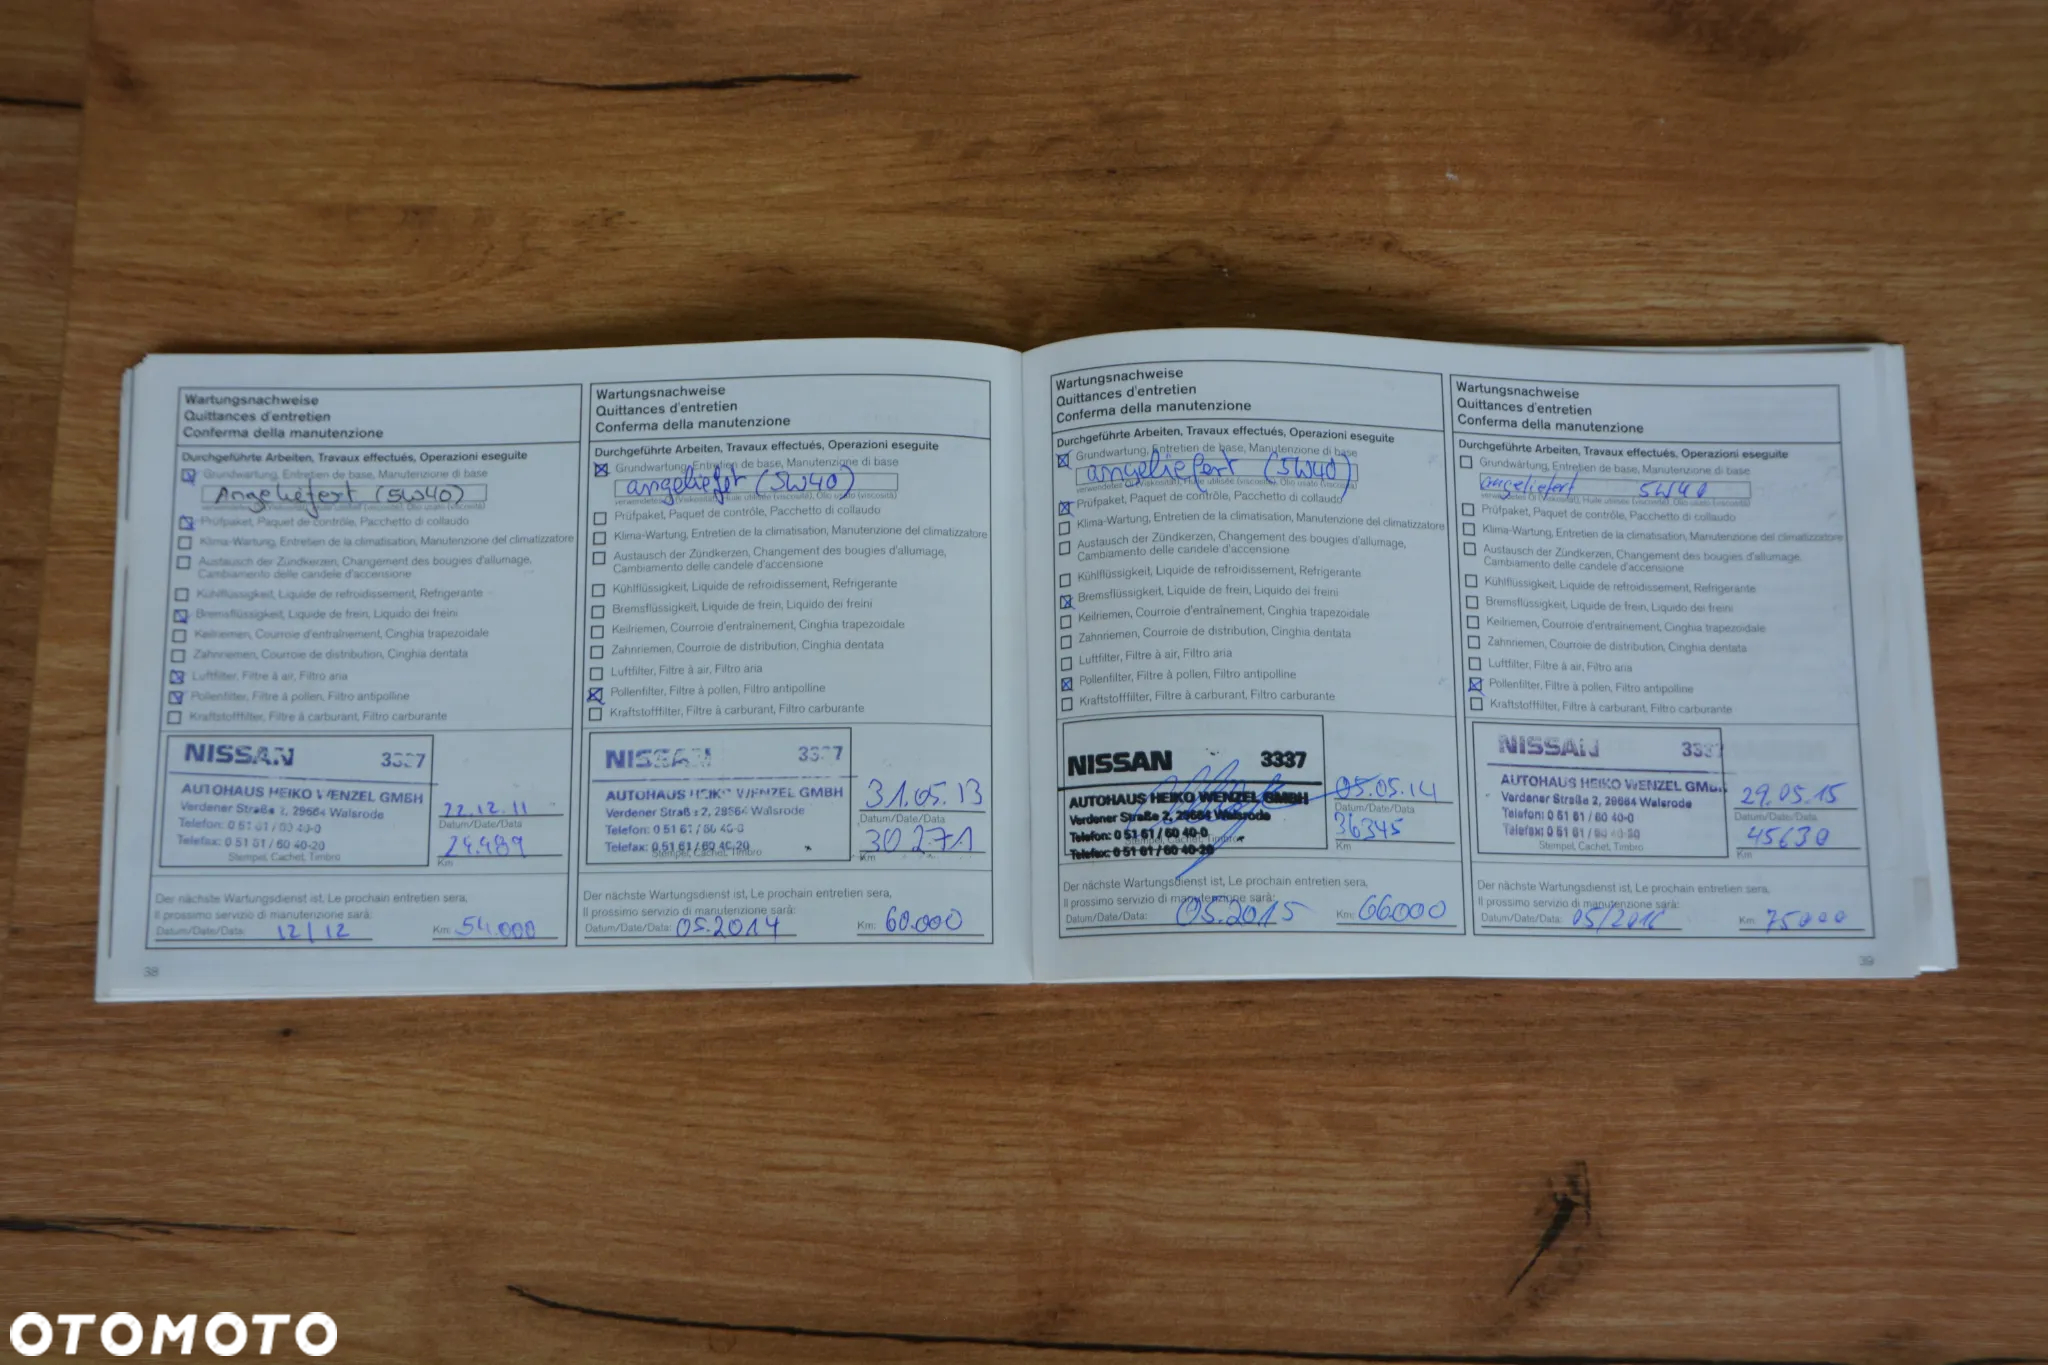 Wartungsnachweise
Quittances d'entretien
Conferma della manutenzione
Durchgeführte Arbeiten, Travaux effectués, Operazioni eseguite
Grundwartung, Entretien de base, Manutenzione di base
Angeliefert (5W40)
Prüfpaket, Paquet de contrôle, Pacchetto di collaudo
Klima-Wartung, Entretien de la climatisation, Manutenzione del climatizzatore
Austausch der Zündkerzen, Changement des bougies d'allumage,
Cambiamento delle candele d'accensione
Kühlflüssigkeit, Liquide de refroidissement, Refrigerante
Bremsflüssigkeit, Liquide de frein, Liquido dei freini
Keilriemen, Courroie d'entraînement, Cinghia trapezoidale
Zahnriemen, Courroie de distribution, Cinghia dentata
Luftfilter, Filtre à air, Filtro aria
Pollenfilter, Filtre à pollen, Filtro antipolline
Kraftstofffilter, Filtre à carburant, Filtro carburante
NISSAN 3337
AUTOHAUS HEIKO WENZEL GMBH
Verdener Straße 2, 29664 Walsrode
Telefon: 0 51 61 / 60 40-0
Telefax: 0 51 61 / 60 40-20
Stempel, Cachet, Timbro
22.12.11
Datum/Date/Data
24.489
Km
Der nächste Wartungsdienst ist, Le prochain entretien sera,
Il prossimo servizio di manutenzione sarà:
Datum/Date/Data: 12/12 Km: 54.000
38
Wartungsnachweise
Quittances d'entretien
Conferma della manutenzione
Durchgeführte Arbeiten, Travaux effectués, Operazioni eseguite
Grundwartung, Entretien de base, Manutenzione di base
angeliefert (5W40)
verwendetes Öl (Viskosität), Huile utilisée (viscosité), Olio usato (viscosità)
Prüfpaket, Paquet de contrôle, Pacchetto di collaudo
Klima-Wartung, Entretien de la climatisation, Manutenzione del climatizzatore
Austausch der Zündkerzen, Changement des bougies d'allumage,
Cambiamento delle candele d'accensione
Kühlflüssigkeit, Liquide de refroidissement, Refrigerante
Bremsflüssigkeit, Liquide de frein, Liquido dei freini
Keilriemen, Courroie d'entraînement, Cinghia trapezoidale
Zahnriemen, Courroie de distribution, Cinghia dentata
Luftfilter, Filtre à air, Filtro aria
Pollenfilter, Filtre à pollen, Filtro antipolline
Kraftstofffilter, Filtre à carburant, Filtro carburante
NISSAN 3337
AUTOHAUS HEIKO WENZEL GMBH
Verdener Straße 2, 29664 Walsrode
Telefon: 0 51 61 / 60 40-0
Telefax: 0 51 61 / 60 40-20
Stempel, Cachet, Timbro
31.05.13
Datum/Date/Data
30271
Km
Der nächste Wartungsdienst ist, Le prochain entretien sera,
Il prossimo servizio di manutenzione sarà:
Datum/Date/Data: 05.2014 Km: 60.000
Wartungsnachweise
Quittances d'entretien
Conferma della manutenzione
Durchgeführte Arbeiten, Travaux effectués, Operazioni eseguite
Grundwartung, Entretien de base, Manutenzione di base
angeliefert (5W40)
verwendetes Öl (Viskosität), Huile utilisée (viscosité), Olio usato (viscosità)
Prüfpaket, Paquet de contrôle, Pacchetto di collaudo
Klima-Wartung, Entretien de la climatisation, Manutenzione del climatizzatore
Austausch der Zündkerzen, Changement des bougies d'allumage,
Cambiamento delle candele d'accensione
Kühlflüssigkeit, Liquide de refroidissement, Refrigerante
Bremsflüssigkeit, Liquide de frein, Liquido dei freini
Keilriemen, Courroie d'entraînement, Cinghia trapezoidale
Zahnriemen, Courroie de distribution, Cinghia dentata
Luftfilter, Filtre à air, Filtro aria
Pollenfilter, Filtre à pollen, Filtro antipolline
Kraftstofffilter, Filtre à carburant, Filtro carburante
NISSAN 3337
AUTOHAUS HEIKO WENZEL GMBH
Verdener Straße 2, 29664 Walsrode
Telefon: 0 51 61 / 60 40-0
Telefax: 0 51 61 / 60 40-20
05.05.14
Datum/Date/Data
36345
Km
Der nächste Wartungsdienst ist, Le prochain entretien sera,
Il prossimo servizio di manutenzione sarà:
Datum/Date/Data: 05.2015 Km: 66000
Wartungsnachweise
Quittances d'entretien
Conferma della manutenzione
Durchgeführte Arbeiten, Travaux effectués, Operazioni eseguite
Grundwartung, Entretien de base, Manutenzione di base
angeliefert 5W40
verwendetes Öl (Viskosität), Huile utilisée (viscosité), Olio usato (viscosità)
Prüfpaket, Paquet de contrôle, Pacchetto di collaudo
Klima-Wartung, Entretien de la climatisation, Manutenzione del climatizzatore
Austausch der Zündkerzen, Changement des bougies d'allumage,
Cambiamento delle candele d'accensione
Kühlflüssigkeit, Liquide de refroidissement, Refrigerante
Bremsflüssigkeit, Liquide de frein, Liquido dei freini
Keilriemen, Courroie d'entraînement, Cinghia trapezoidale
Zahnriemen, Courroie de distribution, Cinghia dentata
Luftfilter, Filtre à air, Filtro aria
Pollenfilter, Filtre à pollen, Filtro antipolline
Kraftstofffilter, Filtre à carburant, Filtro carburante
NISSAN 3337
AUTOHAUS HEIKO WENZEL GMBH
Verdener Straße 2, 29664 Walsrode
Telefon: 0 51 61 / 60 40-0
Telefax: 0 51 61 / 60 40-20
Stempel, Cachet, Timbro
29.05.15
Datum/Date/Data
45630
Km
Der nächste Wartungsdienst ist, Le prochain entretien sera,
Il prossimo servizio di manutenzione sarà:
Datum/Date/Data: 05/2016 Km: 75000
39
OTOMOTO